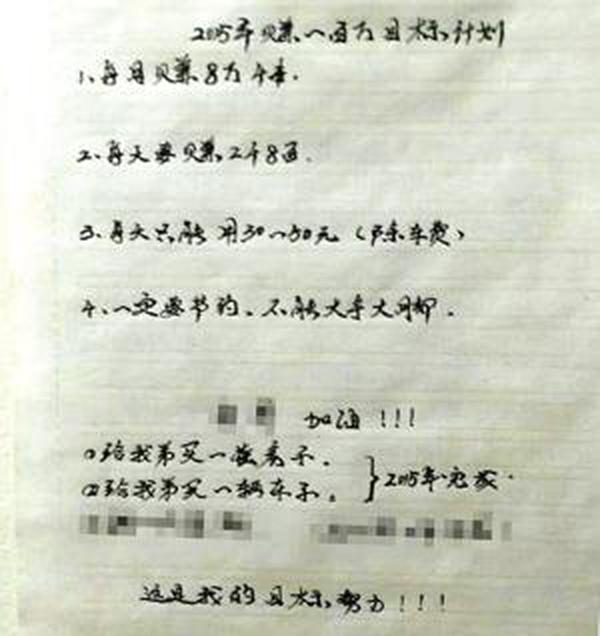 2015年赚一百万目标计划
1、每月赚8万4千.
2、每天要赚2千8百.
3、每天只能用30~50元(除车费)
4、一定要节约、不能大手大脚.
加油!!!
①给我弟买一套房子.
②给我弟买一辆车子. }2015年完成.
这是我的目标努力!!!